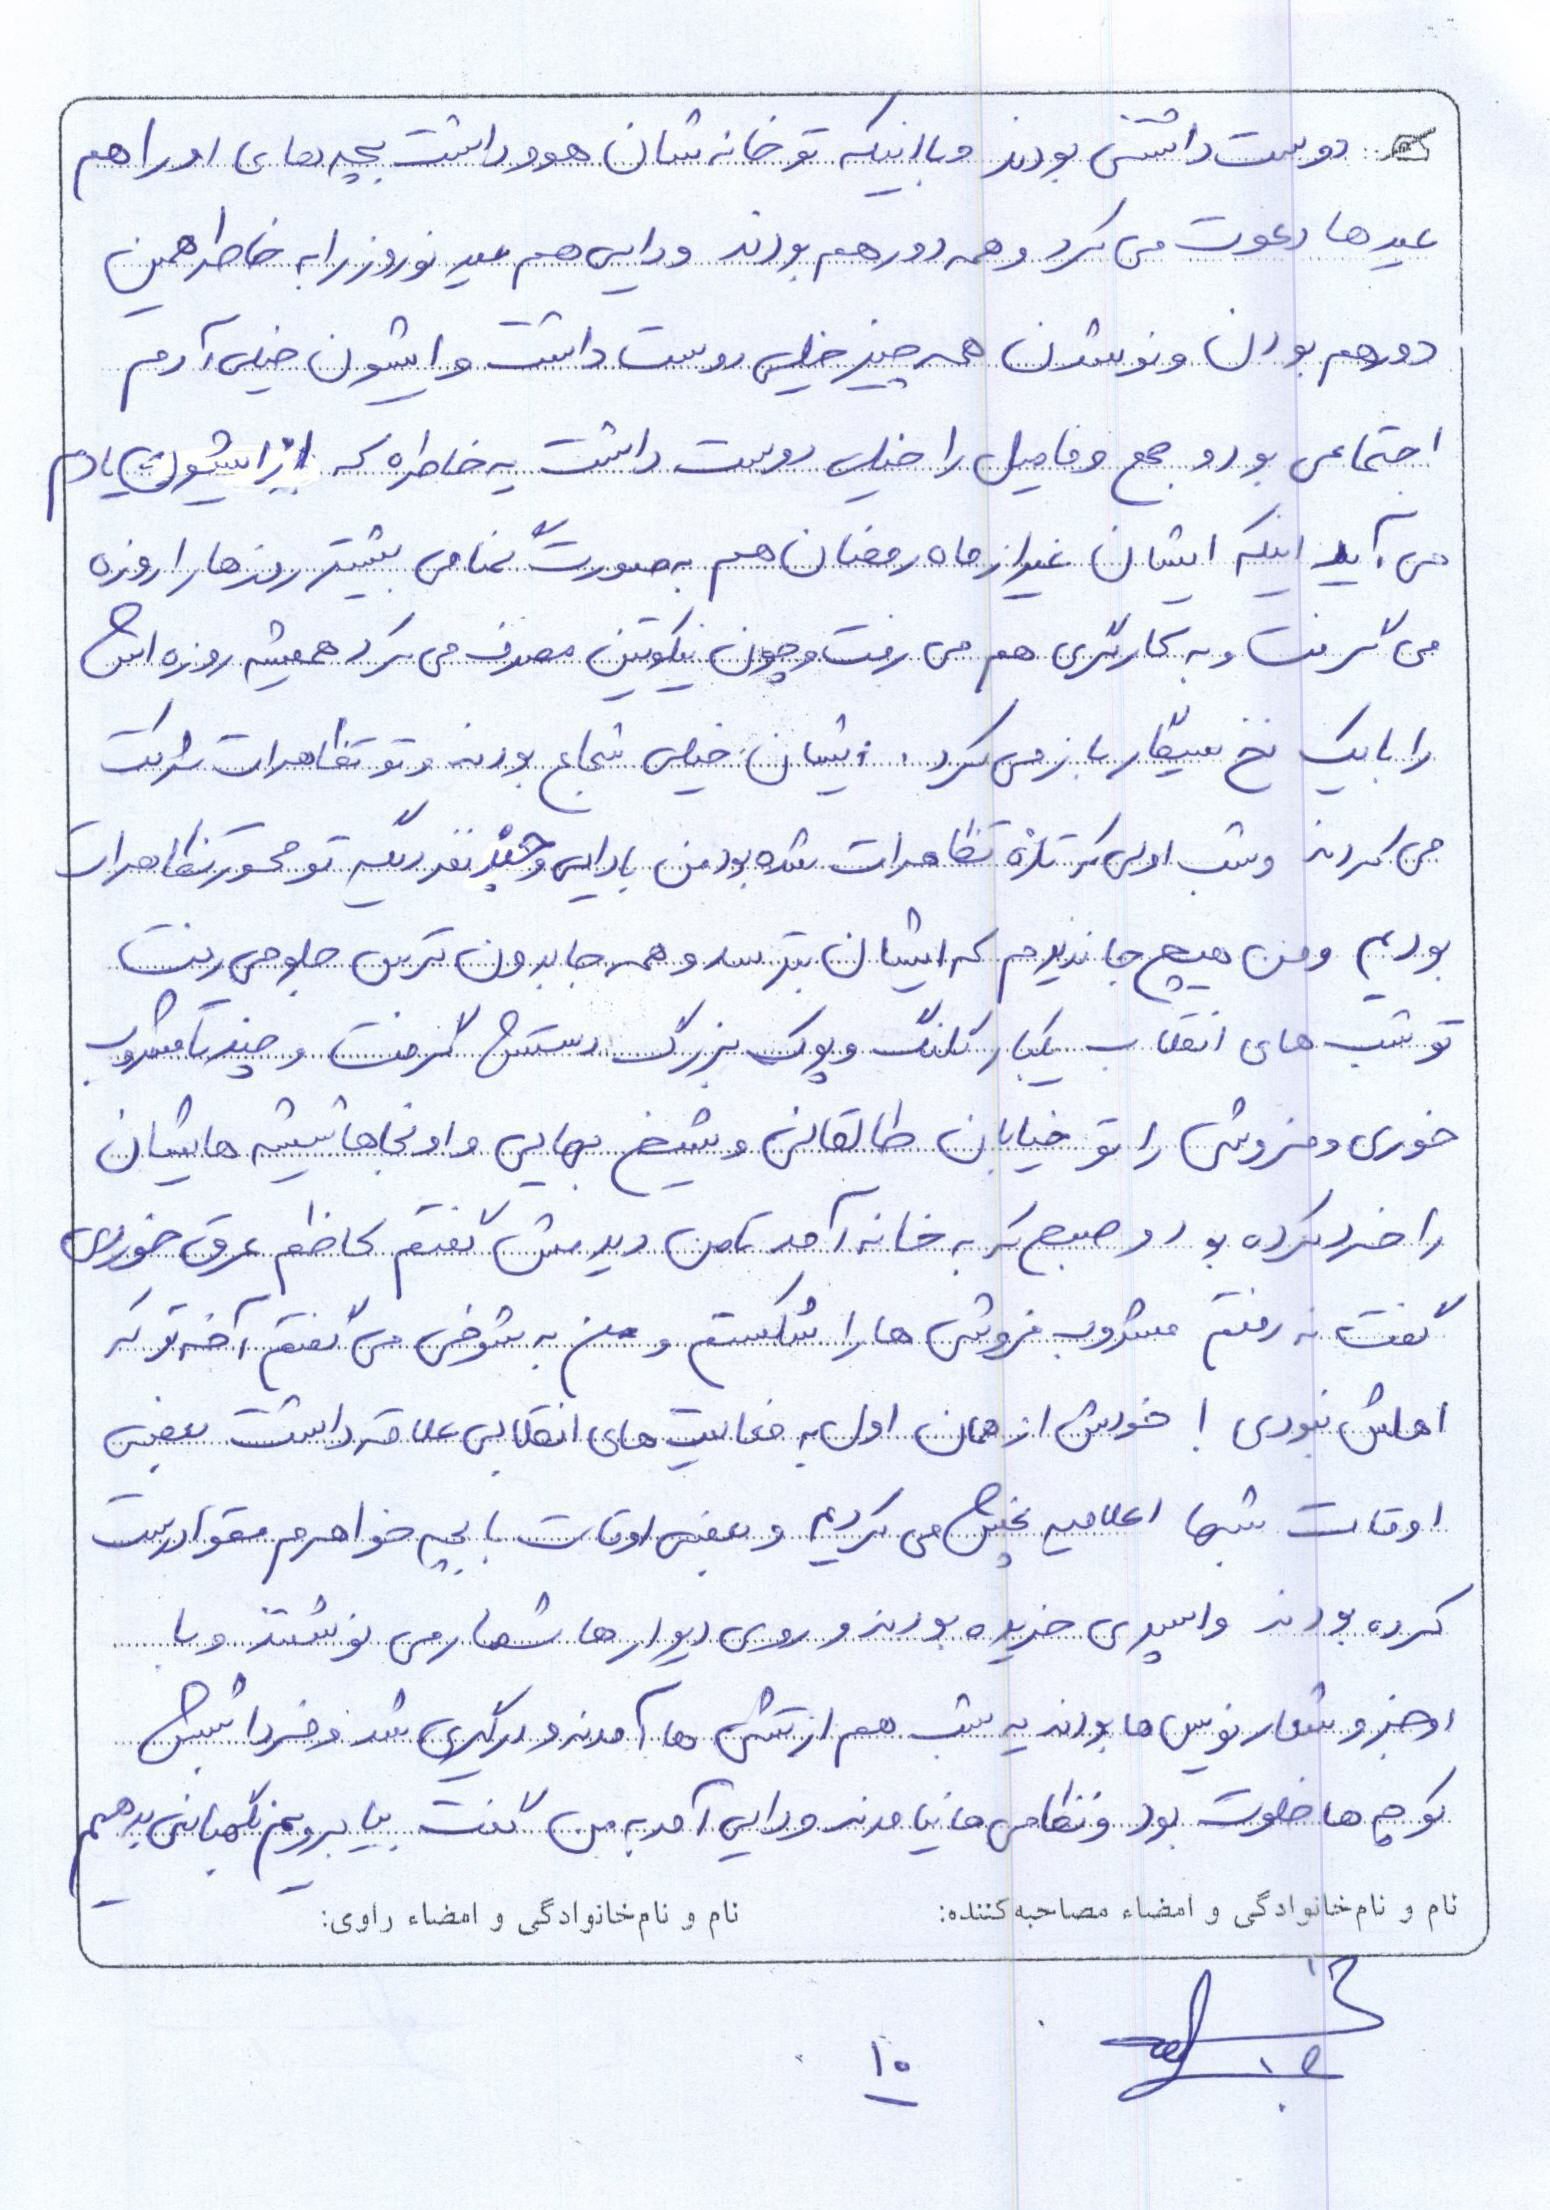 دوست داشتنی بودند و با اینکه تو خانه شان هوو داشت بچه های او را هم
عیدها دعوت می کرد و همه دور هم بودند و دایی هم عید نوروز را به خاطر همین
دور هم بودن و نو شدن همه چیز خیلی دوست داشت و ایشون خیلی آدم
اجتماعی بود و جمع و فامیل را خیلی دوست داشت یه خاطره که از ایشون یادم
می آید اینکه ایشان غیر از ماه رمضان هم به صورت گمنامی بیشتر روزها را روزه
می گرفت و به کارگری هم می رفت و چون نیکوتین مصرف می کرد همیشه روزه اش
را با یک نخ سیگار باز می کرد. ایشان خیلی شجاع بودند و تو تظاهرات شرکت
می کردند و شب اولی که تازه تظاهرات شده بود من با دایی و چند نفر دیگه تو محور تظاهرات
بودیم و من هیچ جا ندیدم که ایشان بترسد و همه جا بدون ترس جلو می رفت
تو شب های انقلاب یکبار کلنگ و پوک بزرگ دستش گرفت و چند تا مشروب
خوری و فروشی را تو خیابان طالقانی و شیخ بهایی و اونجاها شیشه هایشان
را خرد کرده بود و صبح که به خانه آمد تا من دیدمش گفتم کاظم عرق خوردی
گفت نه رفتم مشروب فروشی ها را شکستم و من به شوخی می گفتم آخه تو که
اهلش نبودی ! خودش از همان اول به فعالیت های انقلابی علاقه داشت بعضی
اوقات شبها اعلامیه پخش می کردیم و بعضی اوقات با بچه خواهرم مقوا درست
کرده بودند و اسپری خریده بودند و روی دیوارها شعار می نوشتند و با
او جزو شعار نویس ها بودند یه شب هم ارتشی ها آمدند و درگیری شد و فردا شبش
کوچه ها خلوت بود و نظامی ها نیامدند و دایی آمد به من گفت بیا برویم نگهبانی بدهیم
نام و نام خانوادگی و امضاء مصاحبه کننده: نام و نام خانوادگی و امضاء راوی:
۱۰